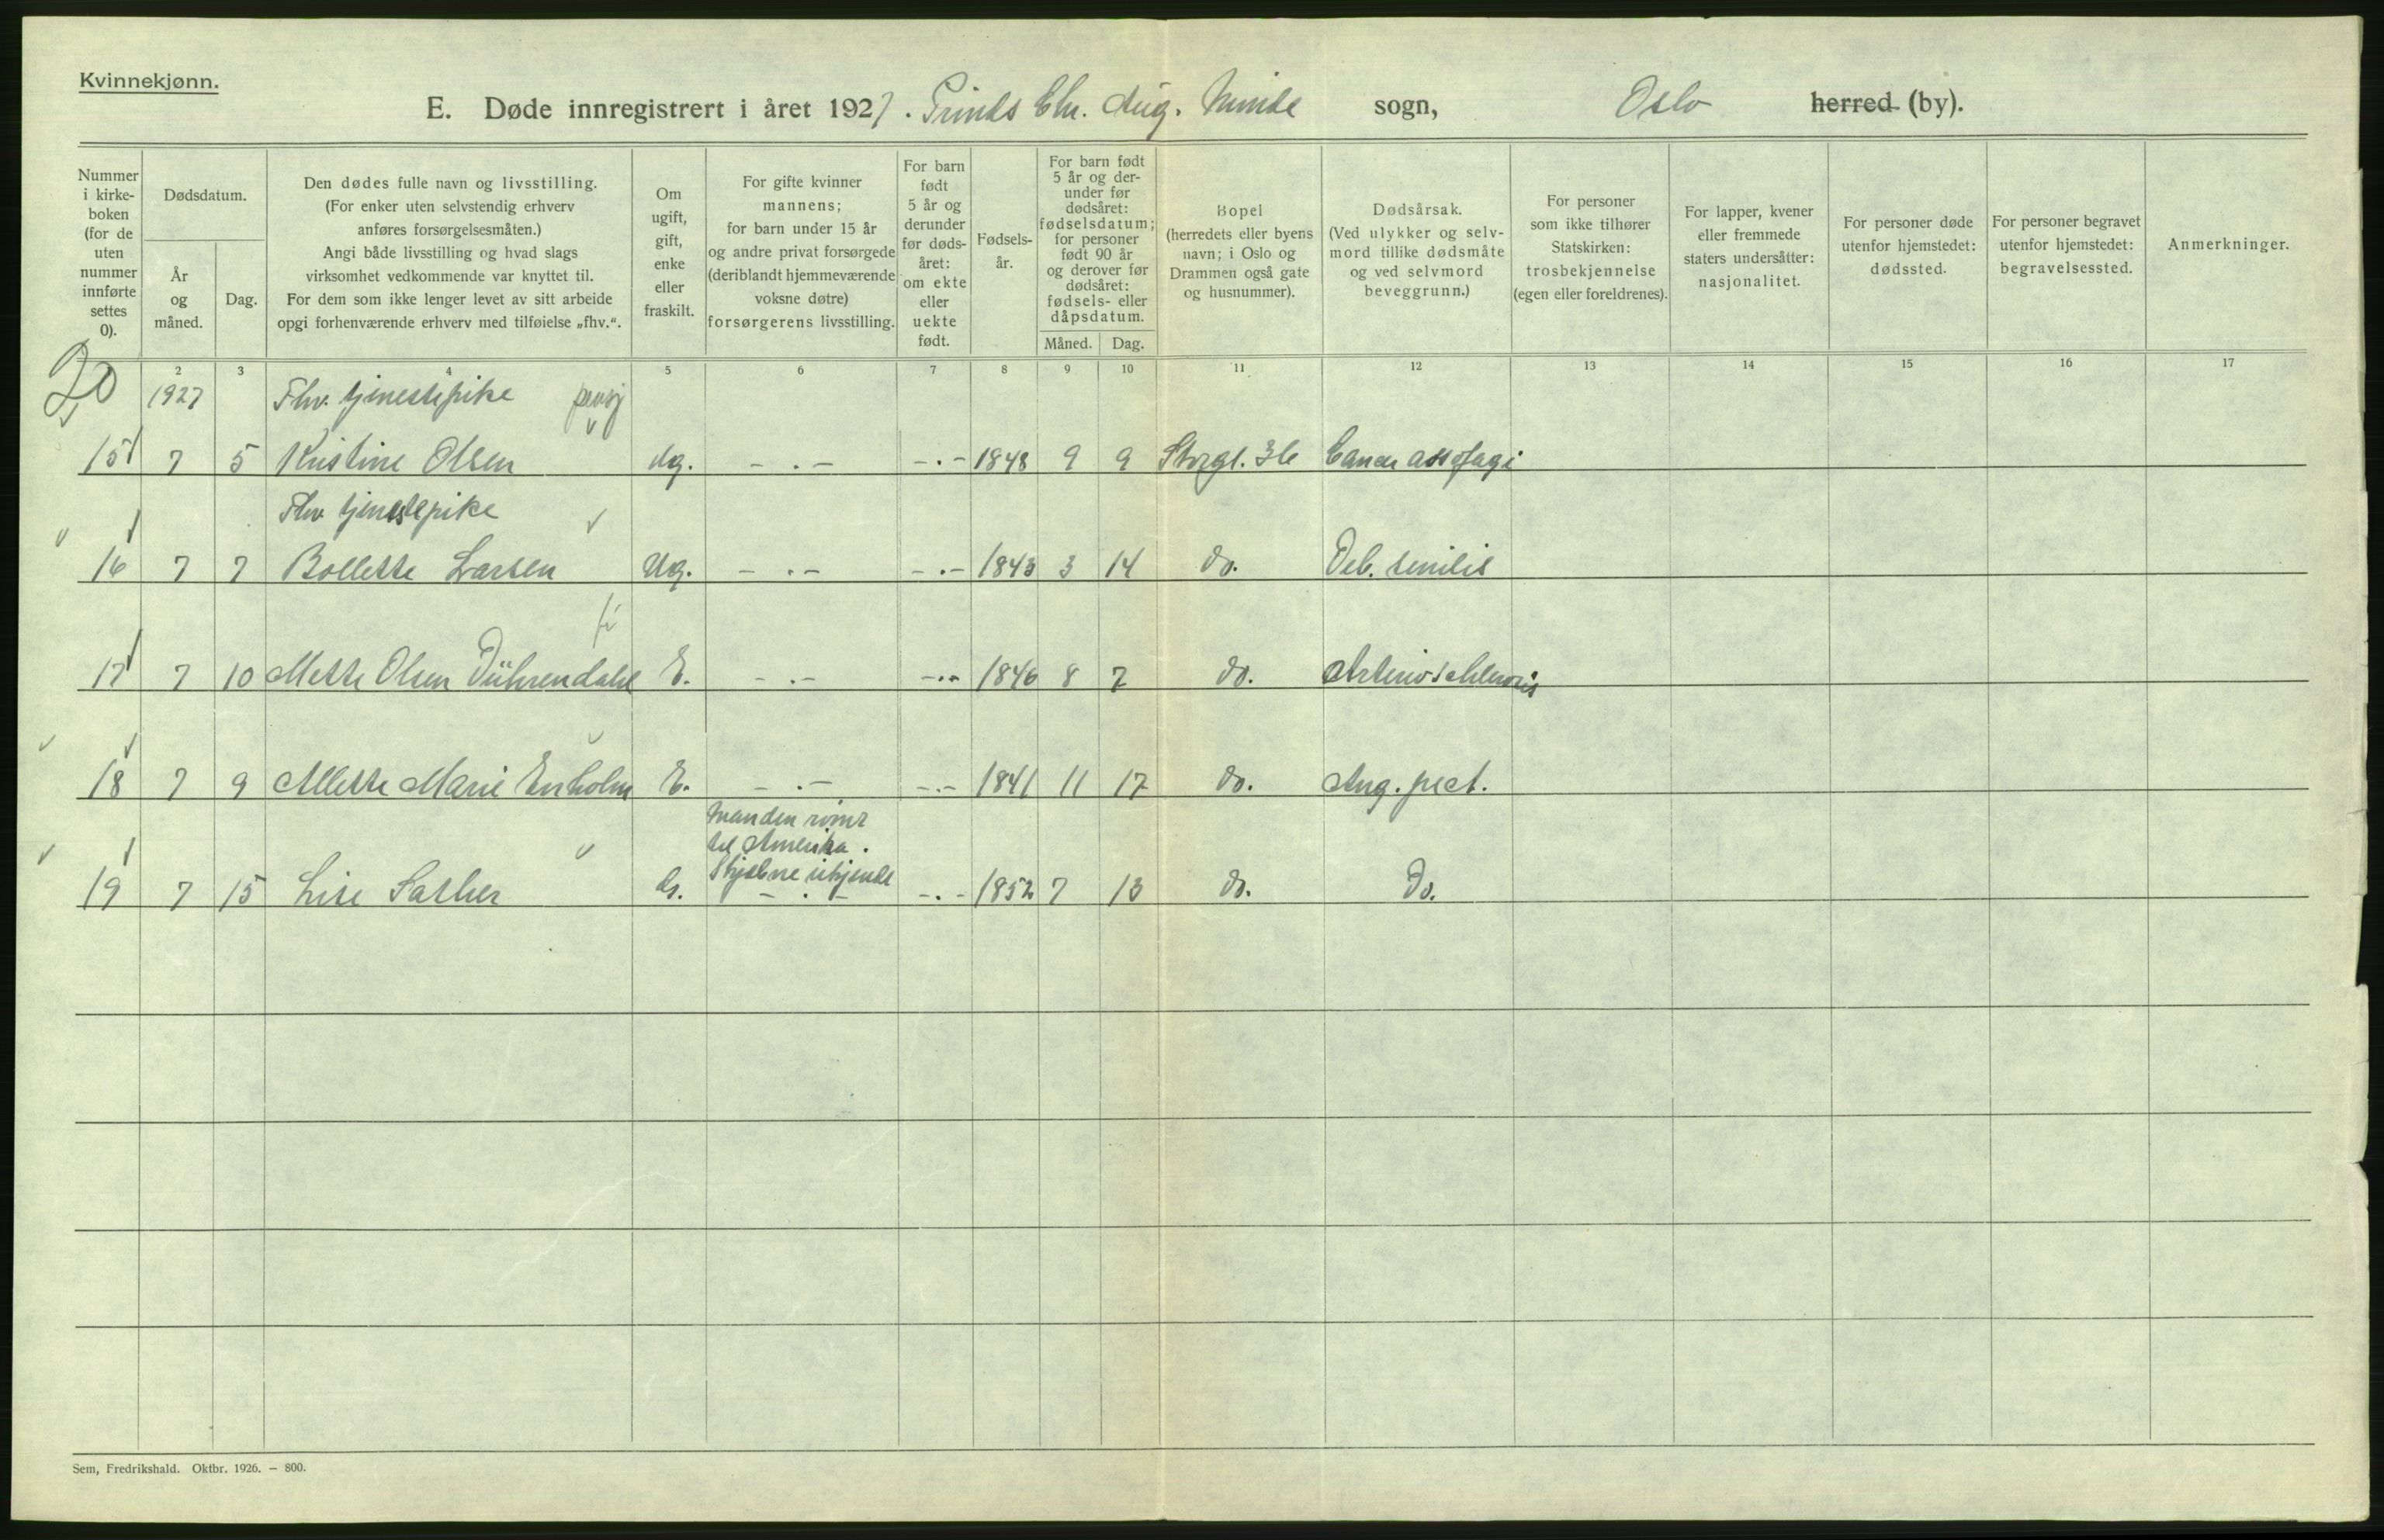 Kvinnekjønn.
E. Døde innregistrert i året 1927. Prinds Chr. Aug. Minde sogn, Oslo herred (by).
Nummer i kirkeboken (for de uten nummer innførte settes 0).
Dødsdatum.
År og måned.
Dag.
Den dødes fulle navn og livsstilling.
(For enker uten selvstendig erhverv
anføres forsørgelsesmåten.)
Angi både livsstilling og hvad slags
virksomhet vedkommende var knyttet til.
For dem som ikke lenger levet av sitt arbeide
opgi forhenværende erhverv med tilføielse „fhv.“.
Om
ugift,
gift,
enke
eller
fraskilt.
For gifte kvinner
mannens;
for barn under 15 år
og andre privat forsørgede
(deriblandt hjemmeværende
voksne døtre)
forsørgerens livsstilling.
For barn
født
5 år og
derunder
før døds-
året:
om ekte
eller
uekte
født.
Fødsels-
år.
For barn født
5 år og der-
under før
dødsåret:
fødselsdatum;
for personer
født 90 år
og derover før
dødsåret:
fødsels- eller
dåpsdatum.
Måned. Dag.
Bopel
(herredets eller byens
navn; i Oslo og
Drammen også gate
og husnummer).
Dødsårsak.
(Ved ulykker og selv-
mord tillike dødsmåte
og ved selvmord
beveggrunn.)
For personer
som ikke tilhører
Statskirken:
trosbekjennelse
(egen eller foreldrenes).
For lapper, kvener
eller fremmede
staters undersåtter:
nasjonalitet.
For personer døde
utenfor hjemstedet:
dødssted.
For personer begravet
utenfor hjemstedet:
begravelsessted.
Anmerkninger.
2 3 4 5 6 7 8 9 10 11 12 13 14 15 16 17
20 1927 Fhv. tjenestepike pensj
15 7 5 Kristine Olsen ug. - . - - . - 1848 9 9 Storgt. 36 Cancer assofagi
Fhv tjenestepike
16 7 7 Bollette Larsen Ug. - . - - . - 1843 3 14 do. Deb. senilis
17 7 10 Mette Olsen Dührendahl E. - . - - . - 1846 8 7 do. Arterioschlerosis
18 7 9 Allette Marie Enholm E. - . - - . - 1841 11 17 do. Ang. pect.
Manden rømt
til Amerika.
Skjæbne ukjendt
19 7 15 Lise Sather G. - . - - . - 1852 7 13 do. Do.
Sem, Fredrikshald. Oktbr. 1926. — 800.